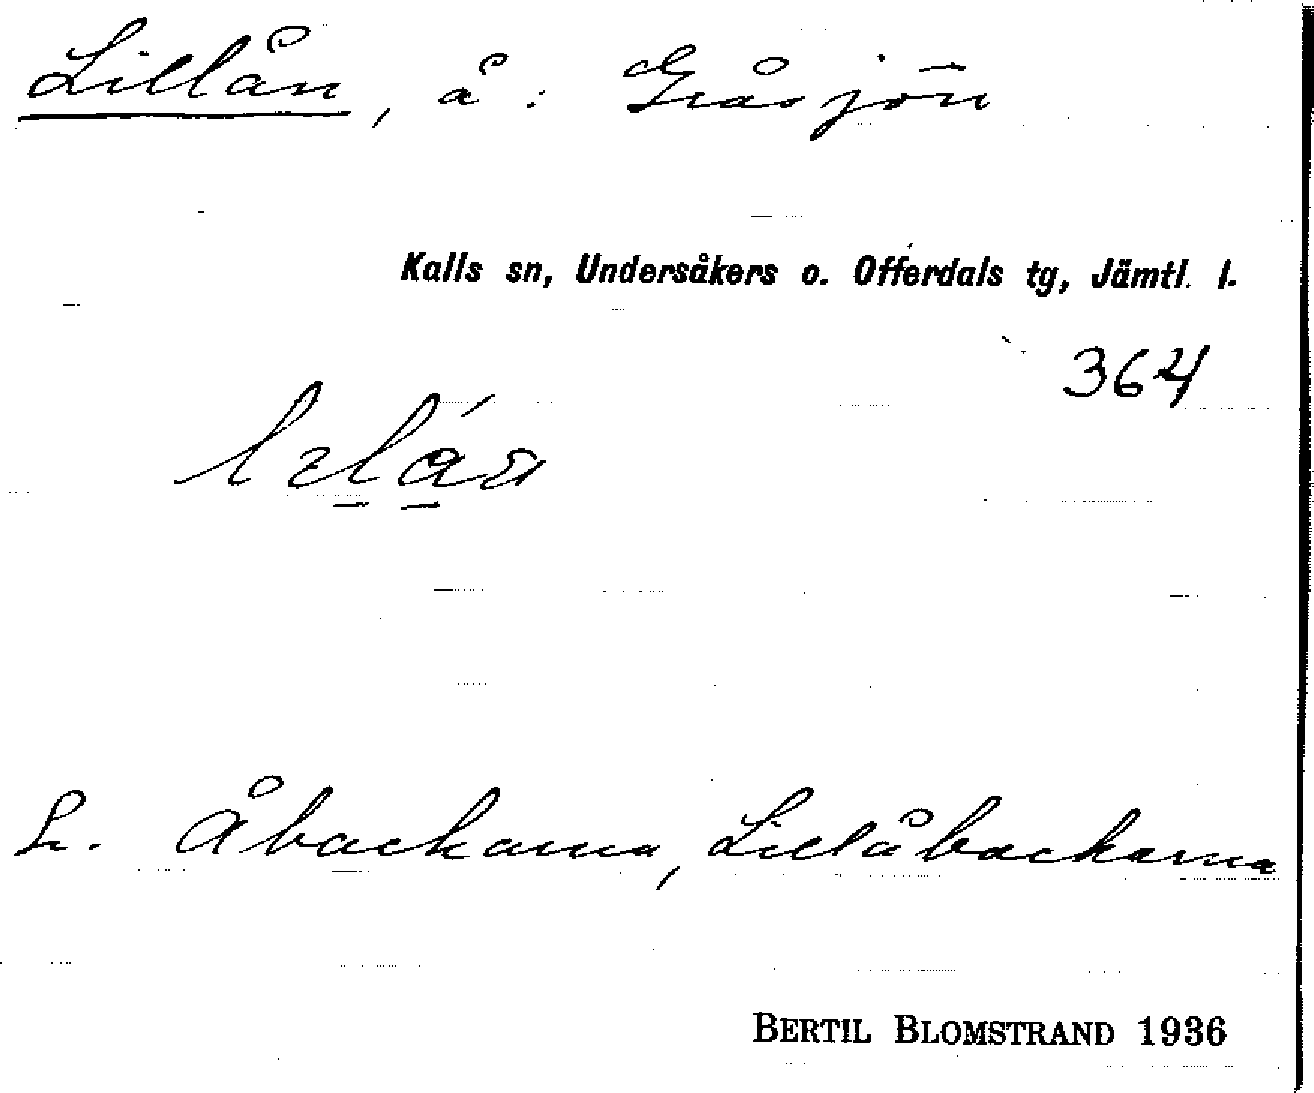 Lillån, å: Gråsjön
Kalls sn, Undersåkers o. Offerdals tg, Jämtl. l.
364
Se. Åbackarna, Lillåbackarna
BERTIL BLOMSTRAND 1936